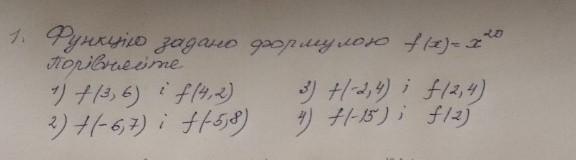 1. Функцію задано формулою f(x)=x²⁰
Порівняйте
1) f(3,6) і f(4,2) 3) f(-2,4) і f(2,4)
2) f(-6,7) і f(-5,8) 4) f(-15) і f(2)